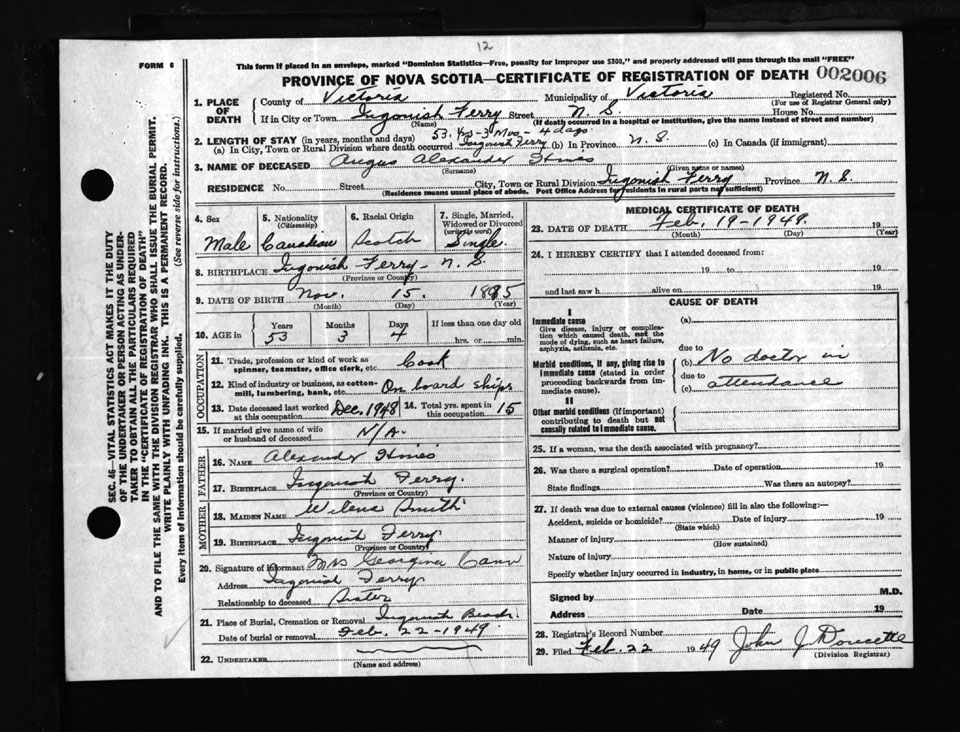 12
FORM 6
This form if placed in an envelope, marked "Dominion Statistics—Free, penalty for improper use $300," and properly addressed will pass through the mail "FREE"
PROVINCE OF NOVA SCOTIA—CERTIFICATE OF REGISTRATION OF DEATH 002006
1. PLACE OF DEATH County of Victoria Municipality of Victoria Registered No.
(For use of Registrar General only)
If in City or Town Ingonish Ferry Street N. S. House No.
(Name) (If death occurred in a hospital or institution, give the name instead of street and number)
2. LENGTH OF STAY (in years, months and days) 53 Yrs-3 Mos-4 days
(a) In City, Town or Rural Division where death occurred Ingonish Ferry (b) In Province N. S. (c) In Canada (if immigrant)
3. NAME OF DECEASED Angus Alexander Hines
(Surname) (Given name or names)
RESIDENCE No. Street City, Town or Rural Division Ingonish Ferry Province N. S.
(Residence means usual place of abode. Post Office Address for residents in rural parts not sufficient)
4. Sex Male
5. Nationality (Citizenship) Canadian
6. Racial Origin Scotch
7. Single, Married, Widowed or Divorced (write the word) Single.
8. BIRTHPLACE Ingonish Ferry - N. S.
(Province or Country)
9. DATE OF BIRTH Nov. 15. 1895
(Month) (Day) (Year)
10. AGE in Years 53 Months 3 Days 4 If less than one day old hrs. or min.
OCCUPATION
11. Trade, profession or kind of work as spinner, teamster, office clerk, etc. Cook
12. Kind of industry or business, as cotton-mill, lumbering, bank, etc. On board ships
13. Date deceased last worked at this occupation Dec. 1948 14. Total yrs. spent in this occupation 15
15. If married give name of wife or husband of deceased N/A.
FATHER
16. NAME Alexander Hines
17. BIRTHPLACE Ingonish Ferry.
(Province or Country)
MOTHER
18. MAIDEN NAME Wilena Smith
19. BIRTHPLACE Ingonish Ferry
(Province or Country)
20. Signature of informant Mrs Georgina Cann
Address Ingonish Ferry
Relationship to deceased Sister
21. Place of Burial, Cremation or Removal Ingonish Beach.
Date of burial or removal Feb. 22-1949
22. UNDERTAKER
(Name and address)
MEDICAL CERTIFICATE OF DEATH
23. DATE OF DEATH Feb. 19-1949. 19
(Month) (Day) (Year)
24. I HEREBY CERTIFY that I attended deceased from:
19 to 19
and last saw h alive on 19
CAUSE OF DEATH
I
Immediate cause (a)
Give disease, injury or complication which caused death, not the mode of dying, such as heart failure, asphyxia, asthenia, etc.
due to
Morbid conditions, if any, giving rise to immediate cause (stated in order proceeding backwards from immediate cause). (b) No doctor in
due to
(c) attendance
II
Other morbid conditions (if important) contributing to death but not causally related to immediate cause.
25. If a woman, was the death associated with pregnancy?
26. Was there a surgical operation? Date of operation 19
State findings Was there an autopsy?
27. If death was due to external causes (violence) fill in also the following:—
Accident, suicide or homicide? Date of injury 19
(State which)
Manner of injury
(How sustained)
Nature of injury
Specify whether injury occurred in industry, in home, or in public place
Signed by M.D.
Address Date 19
28. Registrar's Record Number
29. Filed Feb. 22 1949 John J Doucette
(Division Registrar)
SEC. 46—VITAL STATISTICS ACT MAKES IT THE DUTY
OF THE UNDERTAKER OR PERSON ACTING AS UNDER-
TAKER TO OBTAIN ALL THE PARTICULARS REQUIRED
IN THE "CERTIFICATE OF REGISTRATION OF DEATH"
AND TO FILE THE SAME WITH THE DIVISION REGISTRAR WHO SHALL ISSUE THE BURIAL PERMIT.
WRITE PLAINLY WITH UNFADING INK. THIS IS A PERMANENT RECORD.
Every item of information should be carefully supplied. (See reverse side for instructions.)